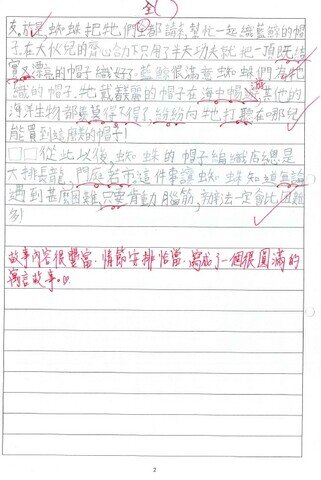 全
友,於是蜘蛛把牠們都請來幫忙一起織藍鯨的帽
子。在大伙兒的齊心合力下只用了半天功夫就把一頂既結
實又漂亮的帽子織好了。藍鯨很滿意蜘蛛們為牠
織的帽子。牠戴嶄新的帽子在海中暢游,其他的
海洋生物都羨慕得不得了,紛紛向牠打聽在哪兒
能買到這麼美的帽子!
□□從此以後,蜘蛛的帽子編織店總是
大排長龍,門庭若市這件事讓蜘蛛知道無論
遇到甚麼困難,只要肯動腦筋,辦法一定會比困難
多!
故事內容很豐富,情節安排恰當,寫出了一個很圓滿的
寓言故事。
2